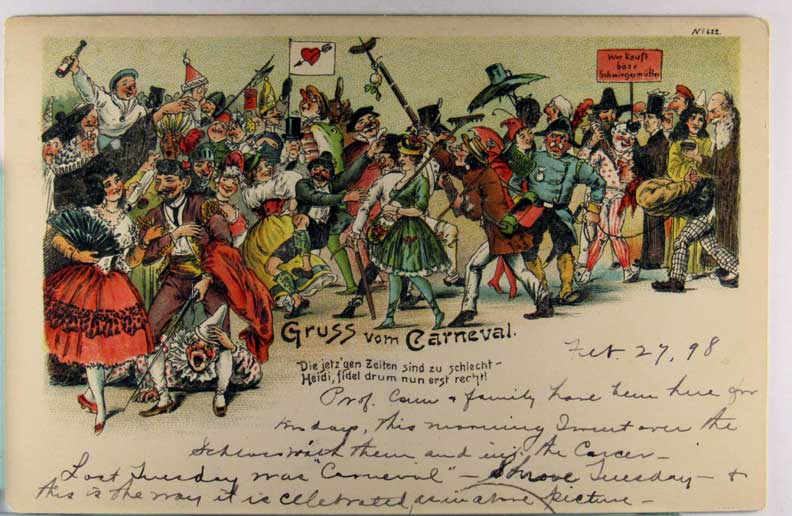 No 622.
Wer kauft
böse
Schwiegermütter
Gruss vom Carneval.
Die jetz'gen Zeiten sind zu schlecht-
Heidi, fidel drum nun erst recht!
Feb. 27, 98
Prof. & family have been here for
days, this morning I went over the
Schloss with them and the Carcer-
Last Tuesday was "Carneval" - Shrove Tuesday - &
this is the way it is celebrated, as in above picture -